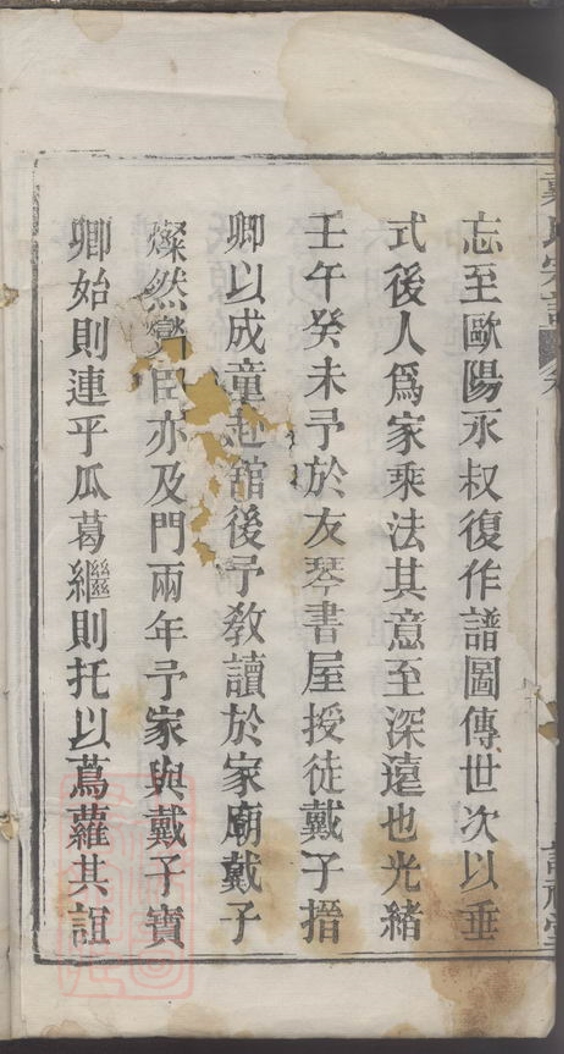 忘至歐陽永叔復作譜圖傳世次以垂
式後人爲家乘法其意至深遠也光緒
壬午癸未予於友琴書屋授徒戴子搢
卿以成童赴館後予教讀於家廟戴子
燦然臣亦及門兩年予家與戴子寶
卿始則連乎瓜葛繼則托以蔦蘿其誼